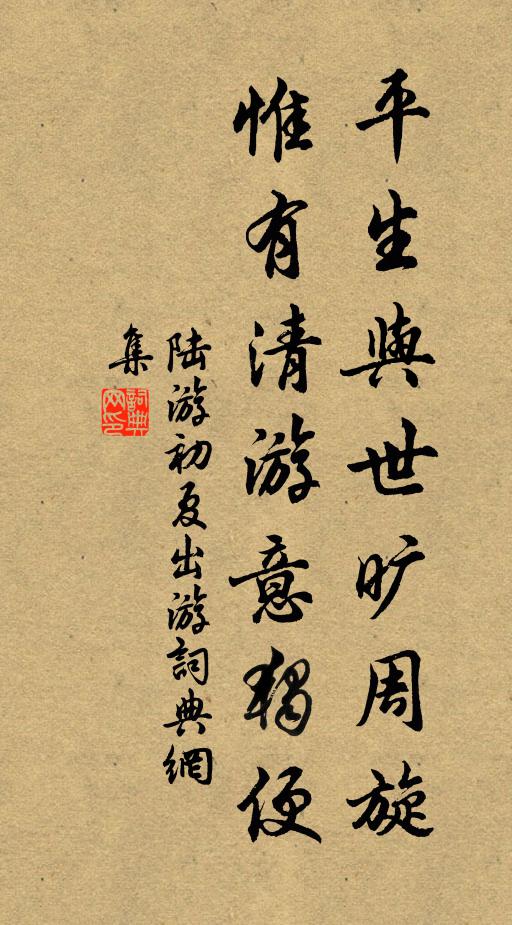 平生與世旷周旋
惟有清游意獨便
陆游初夏出游詞典網
集
詞典
网印